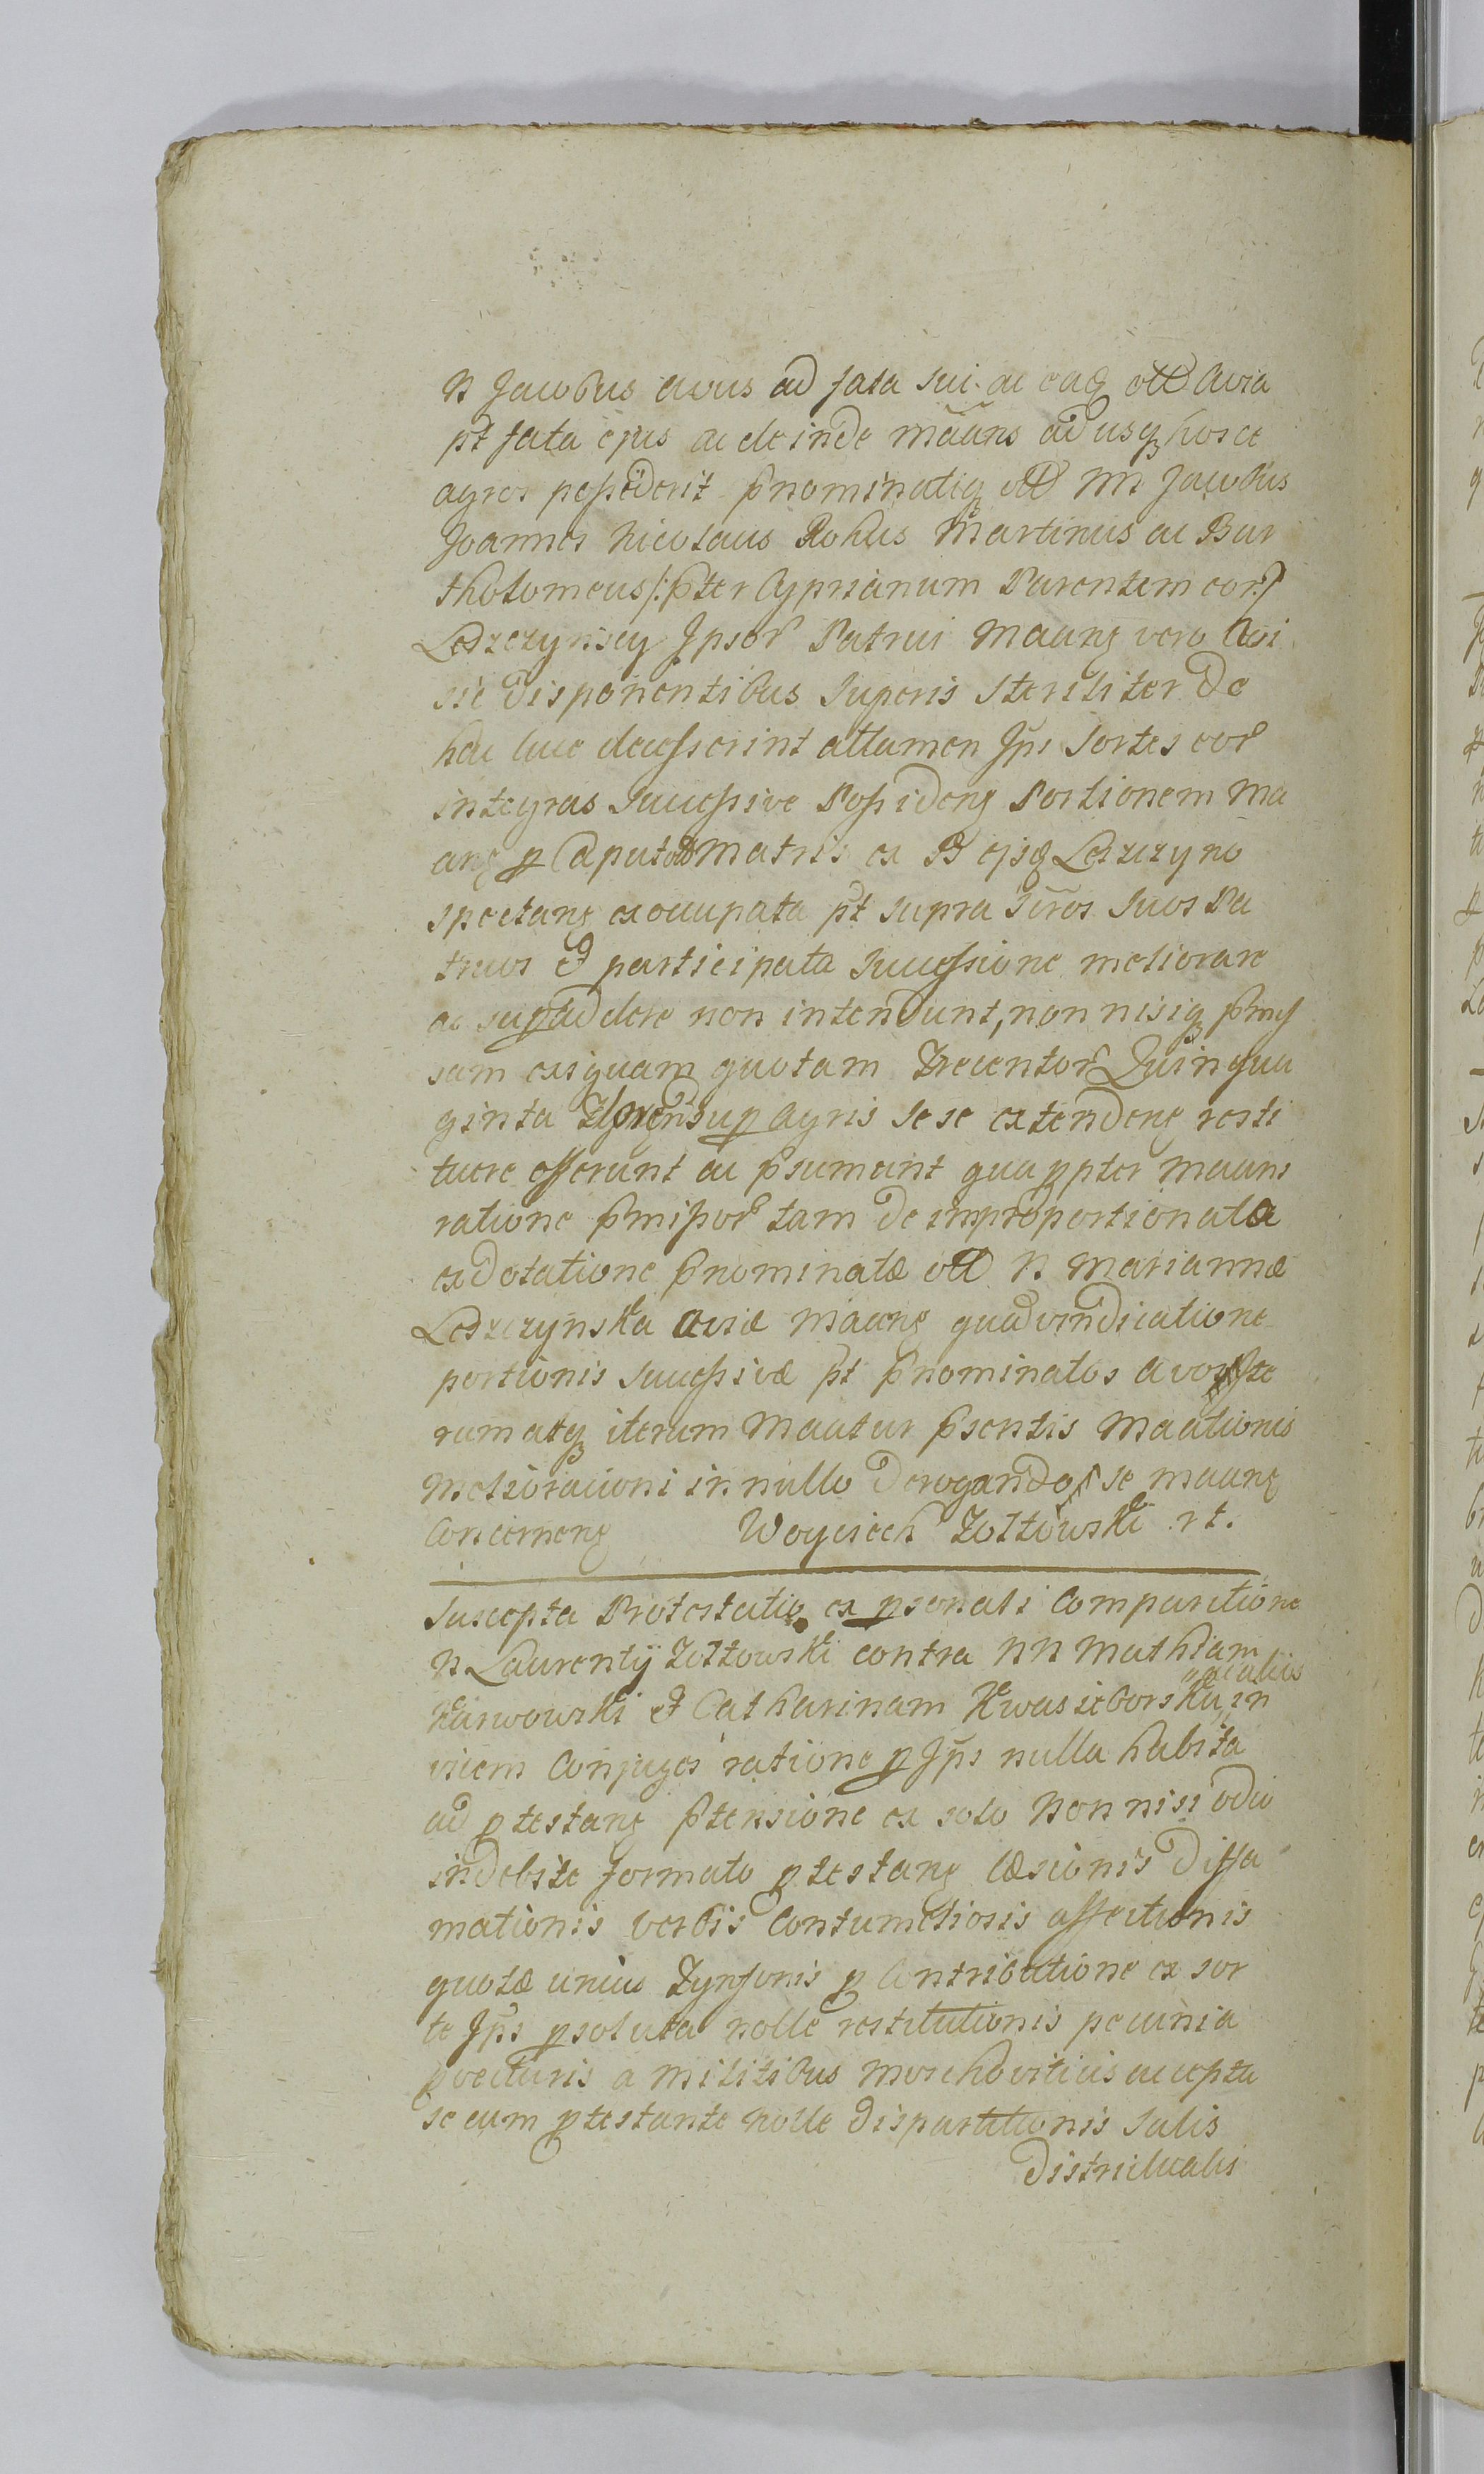 N Jacobus avus ad fata sui ac eadē oltt Avia
pt fata ejus ac deinde mãans ad usq hosce
agros possederit p̃nominatiq oltt NN Jacobus
Joannes Nicolaus Rohus Martinus ac Bar
tholomeus /: p̃ter Cyprianum Parentem eor :/
Ledzczynscy Ipsor Patrui Maang vero Avi
sic disponentibus Superis steriliter de
hac luce decesserint attamen Ip̃i sortes eor
integras successive Possideng Portionem Ma
ang p Caput Matris ex B ejsq Ledzczyno
spectang ex occupata p̃t supra sc̃ros suos Pa
truos et participata Successione meliorare
ac supaddere non intendunt, non nisiq p̃mis
sam exiguam quotam Trecentor Quinqua
ginta sup agris sese extendeng resti
tuere offerunt ac p̃sumant quappter Maans
ratione p̃missor tam de improportionata
exdotatione p̃nominatæ oltt N Mariannæ
Ledzczynska Aviæ Maang quã vindicatione
portionis Successivæ p̃t p̃nominatos Avos ite
rum atq iterum Maatur p̃sentis Maationis
Melioracioni in nullo derogando se maang
Concerneng Woyciech Zołtowski rt.
Suscepta Protestatio ex psonali Comparitione
N Laurentÿ Zołtowski contra NN Mathiam
Karwowski et Catharinam Kwasieborska in
vicem Conjuges ratione p Ip̃s nulla habita
ad ptestang p̃tensione ex solo Non nisi odio
indebite formato ptestang læsionis diffa
mationis verbis Contumeliosis affectionis
quotæ unius Tynfonis p Contributione ex sor
te Ip̃s psoluta nolle restitutionis pecunia
p vecturis a Militibus Moschoviticis accepta
se cum ptestante nolle dispartitionis Salis
districtualis